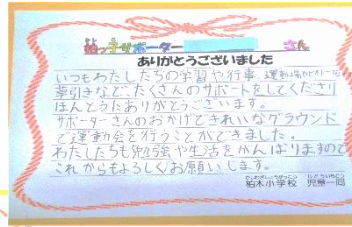 柏っ子サポーター さん
ありがとうございました
いつもわたしたちの学習や行事、運動場や
草引きなど、たくさんのサポートをしてくださり
ほんとうにありがとうございます。
サポーターさんのおかげできれいなグラウンド
で運動会を行うことができました。
わたしたちも勉強や生活をがんばりますので
これからもよろしくお願いします。
柏木小学校 児童一同